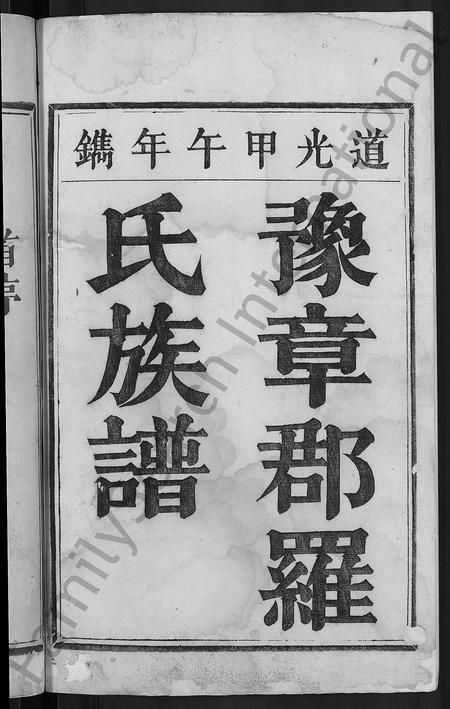 道光甲午年鐫
豫章郡羅
氏族譜
FamilySearch International